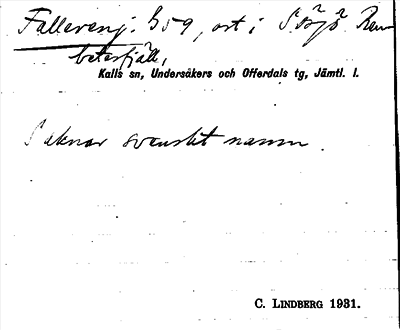 Fallereng. G 59, ort i S Ren-
betesfjäll,
Kalls sn, Undersåkers och Offerdals tg, Jämtl. l.
Saknar svenskt namn.
C. LINDBERG 1931.